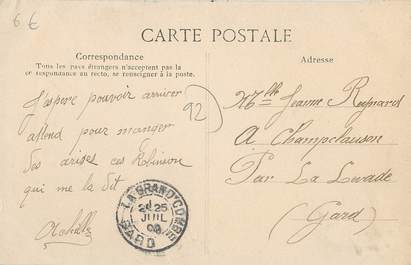 6 €
CARTE POSTALE
Correspondance
Tous les pays étrangers n'acceptent pas la
correspondance au recto, se renseigner à la poste.
Adresse
J'espere pouvoir arriver
attend pour manger
des
Robinson
qui me la dit
92
LA GRAND'COMBE
25
JUIL
09
GARD
Mlle Jeanne Reynard
A Champclauson
Par La Levade
(Gard)